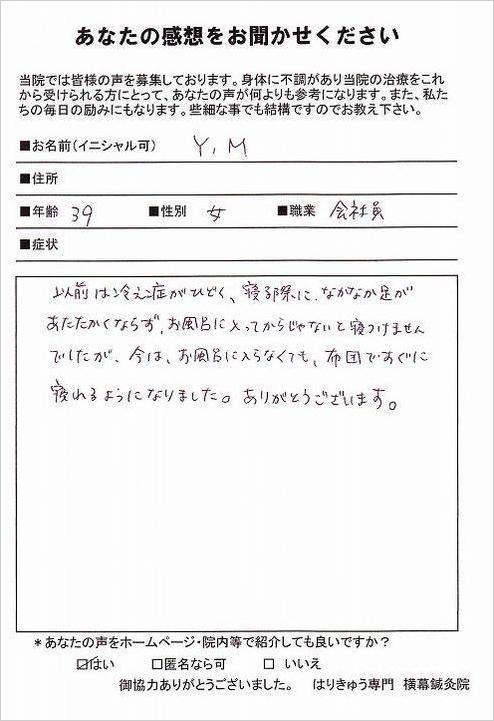 あなたの感想をお聞かせください
当院では皆様の声を募集しております。身体に不調があり当院の治療をこれ
から受けられる方にとって、あなたの声が何よりも参考になります。また、私た
ちの毎日の励みにもなります。些細な事でも結構ですのでお教え下さい。
■お名前(イニシャル可) Y,M
■住所
■年齢 39 ■性別 女 ■職業 会社員
■症状
以前は冷え症がひどく、寝る際に、なかなか足が
あたたかくならず、お風呂に入ってからじゃないと寝つけません
でしたが、今は、お風呂に入らなくても、布団ですぐに
寝れるようになりました。ありがとうございます。
*あなたの声をホームページ・院内等で紹介しても良いですか?
☑はい □匿名なら可 □ いいえ
御協力ありがとうございました。 はりきゅう専門 横幕鍼灸院